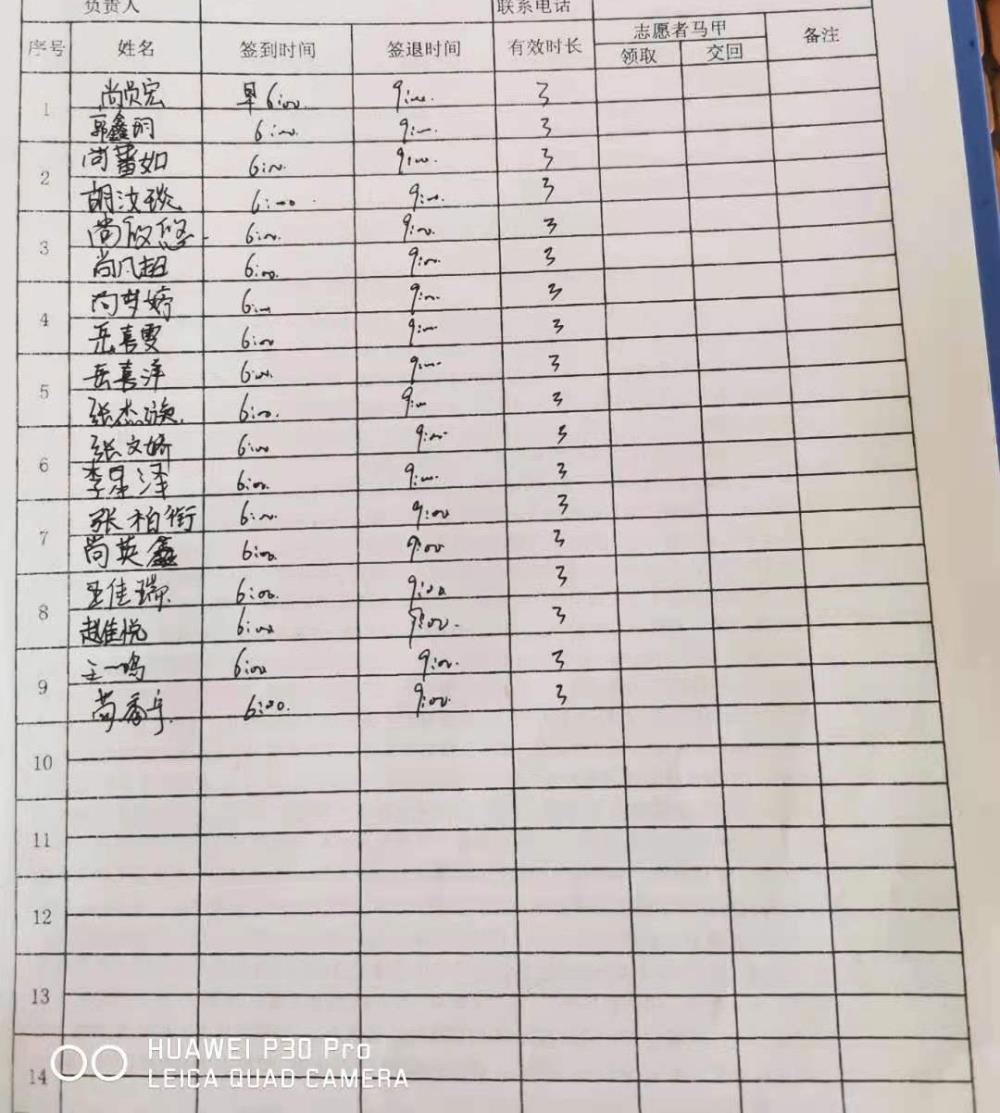 负责人 联系电话
序号 姓名 签到时间 签退时间 有效时长 志愿者马甲 备注
领取 交回
1 尚贵宏 早6:00. 9:00. 3
郭鑫明 6:00. 9:00. 3
2 尚蕃如 6:00. 9:00. 3
胡汝琰 6:00. 9:00. 3
3 尚欣悠 6:00. 9:00. 3
尚凡超 6:00. 9:00. 3
4 尚梦娇 6:00 9:00. 3
岳喜雯 6:00 9:00 3
5 岳喜泽 6:00. 9:00 3
张杰 6:00. 9:00 3
6 张文娇 6:00 9:00 3
李星泽 6:00. 9:00. 3
7 张柏衔 6:00. 9:00 3
尚英鑫 6:00. 9:00 3
8 王佳瑞 6:00. 9:00 3
赵佳悦 6:00 9:00. 3
9 王一鸣 6:00 9:00. 3
尚 6:00. 9:00. 3
10
11
12
13
14
HUAWEI P30 Pro
LEICA QUAD CAMERA